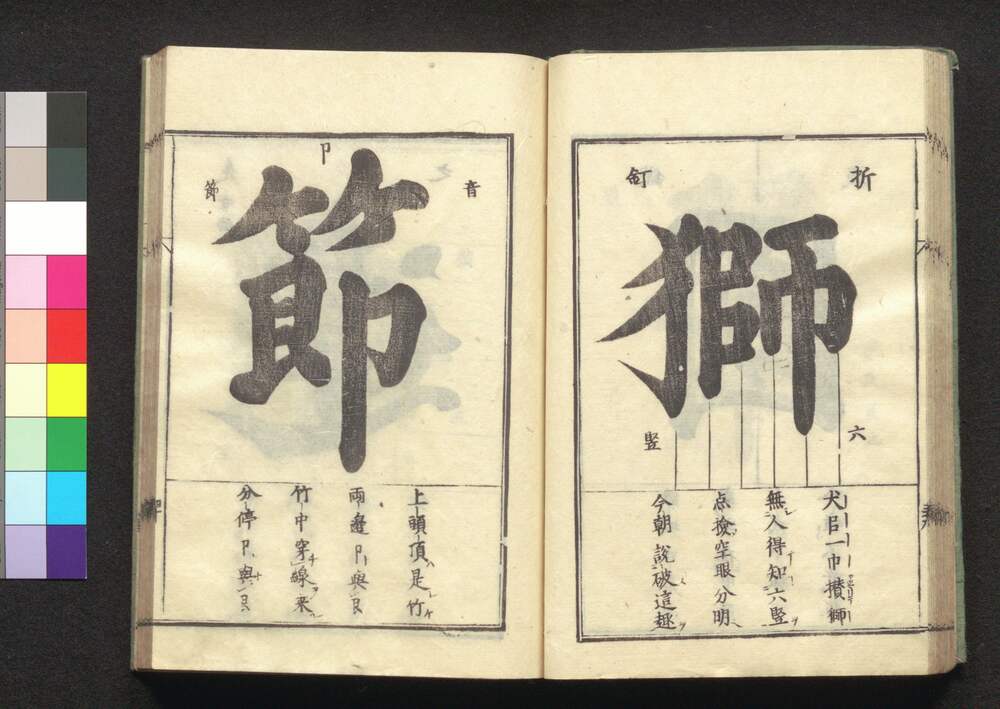 折釘
獅
六竪
犬𠂤一巾攅獅
無人得知六竪
点撿空眼分明
今朝説破這趣
音卩節
節
上頭頂是竹
兩邊卩與㠯
竹中穿線来
分停卩與㠯